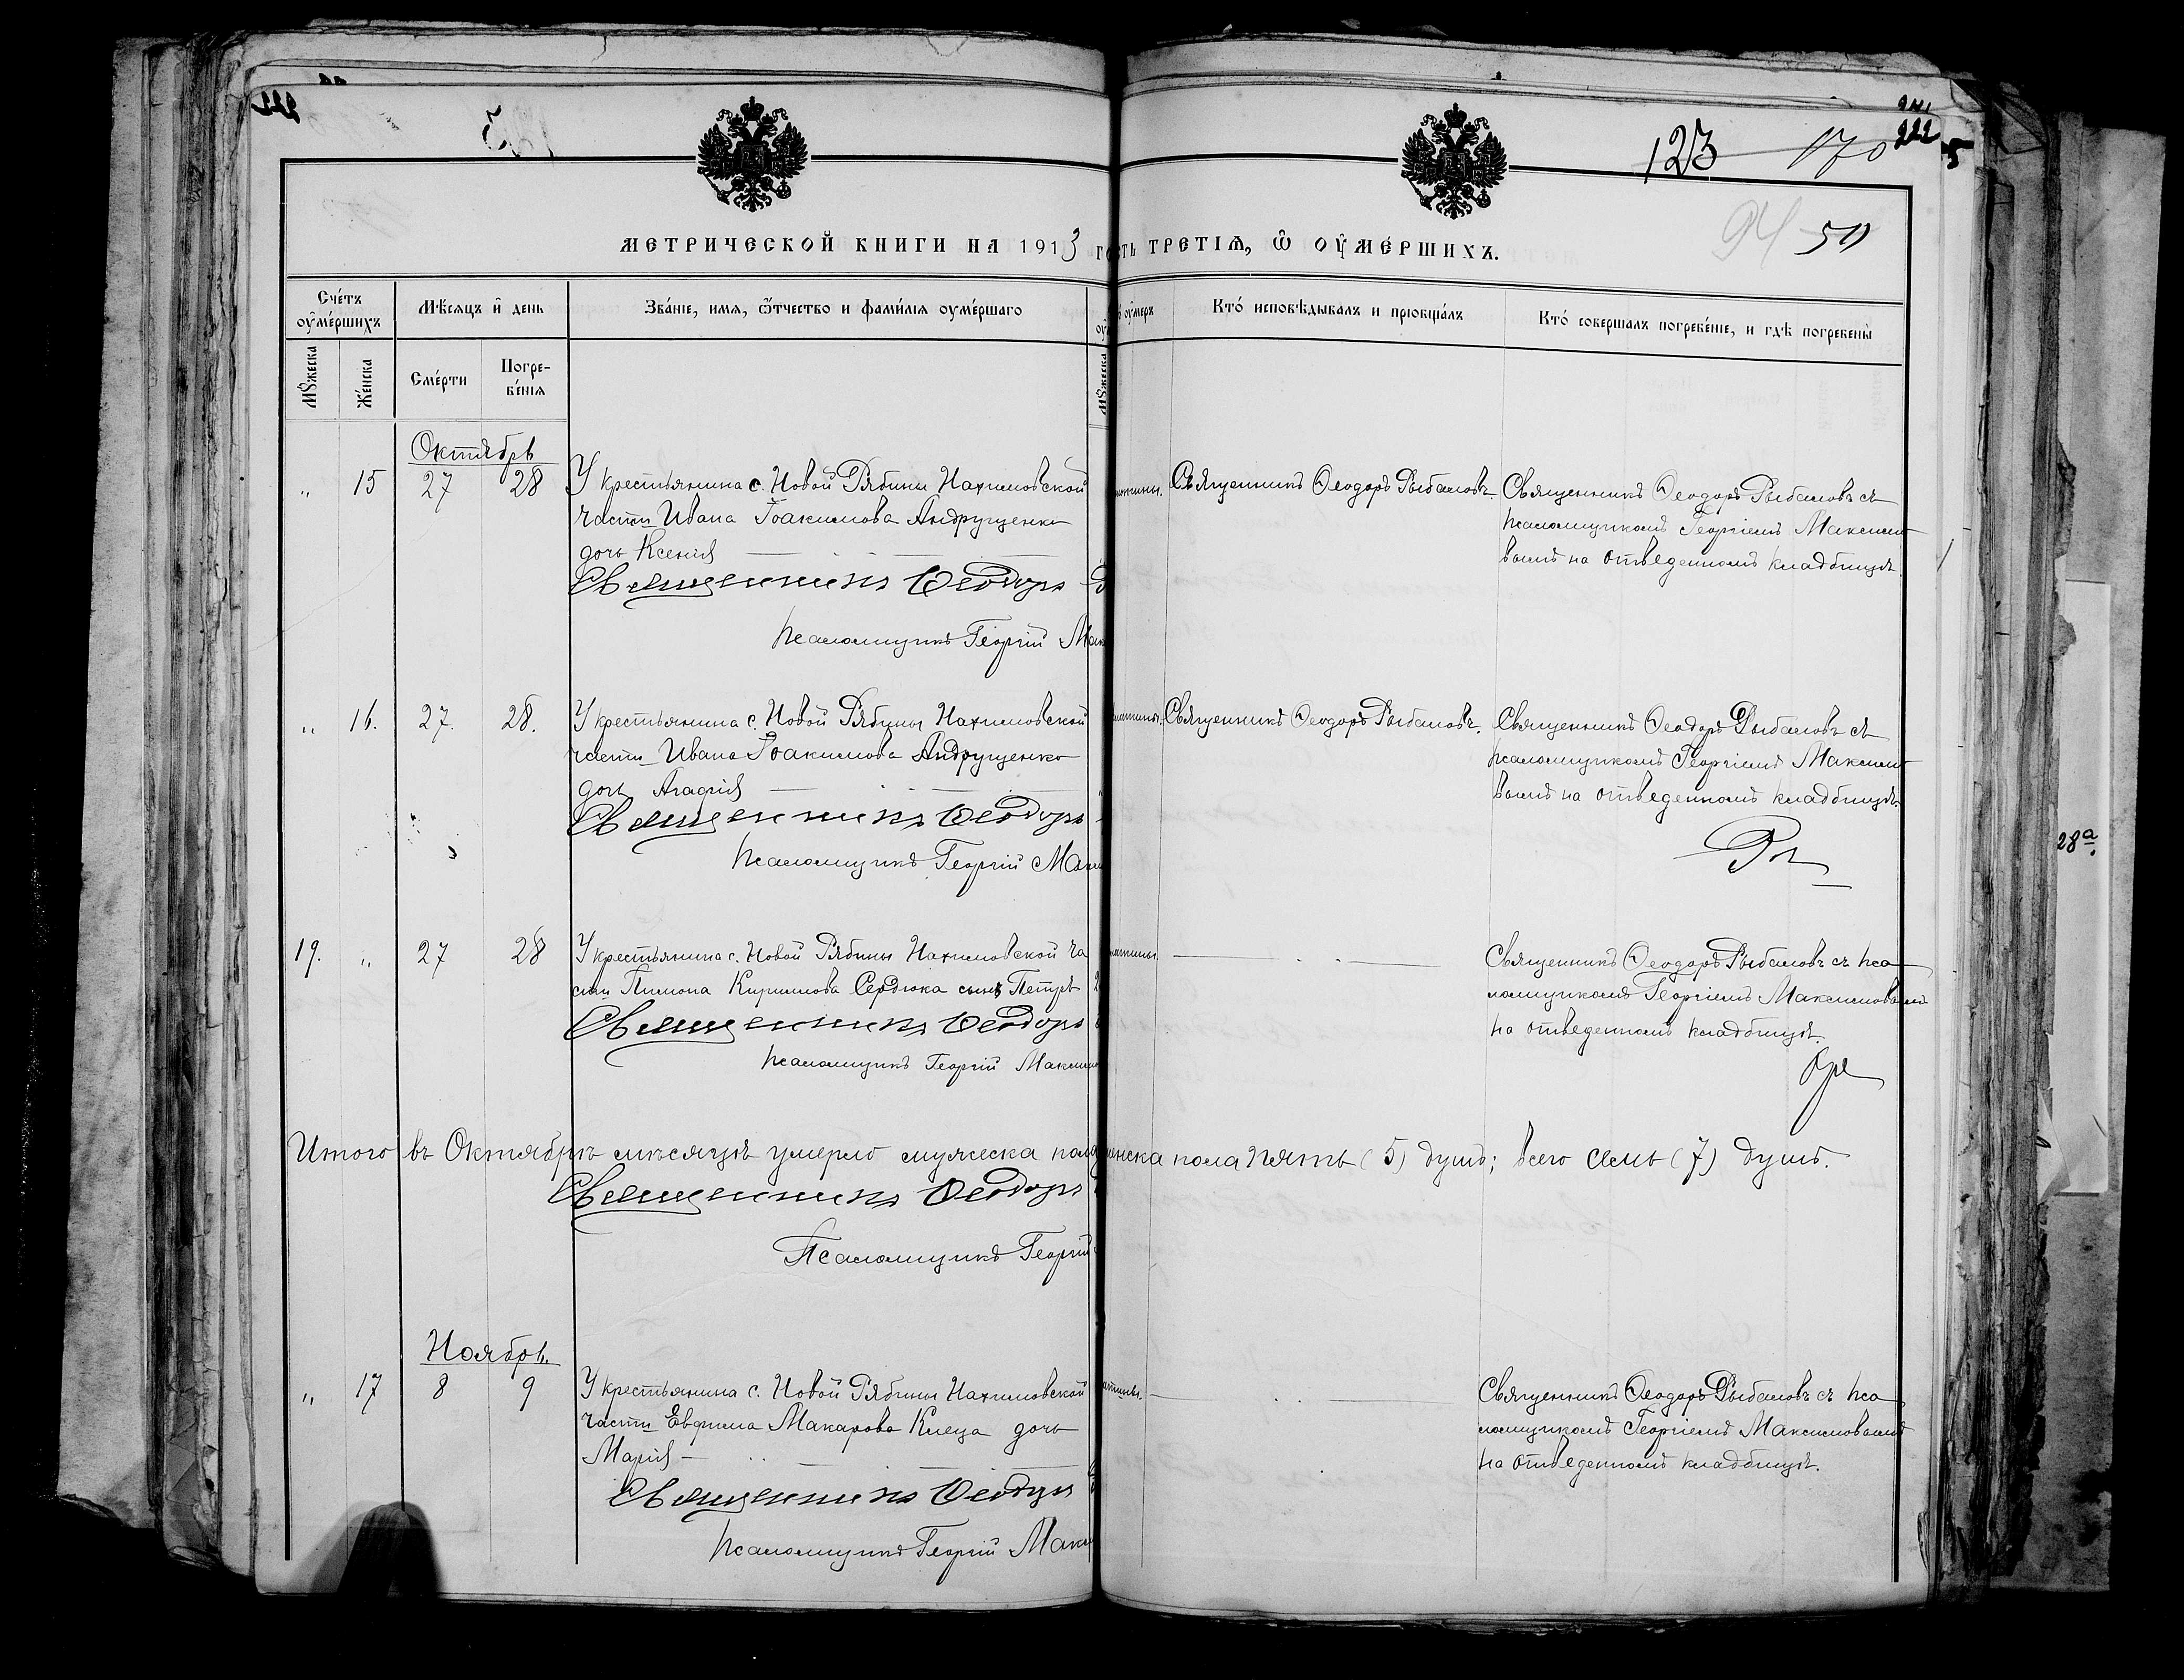 222
123 170 222
5
94 50
МЕТРИЧЕСКОЙ КНИГИ НА 1913 ТРЕТІѦ, Ѡ ОУМЕРШИХЪ.
Счетъ оумершихъ
Мѣсяцъ и день
Званіе, имя, ѿчество и фамилія оумершаго
оумеръ
Кто исповѣдывалъ и пріобщалъ
Кто совершалъ погребеніе, и гдѣ погребены
Мужеска
Женска
Смерти
Погре-
бенія
Мужеска
Октябрь
" 15 27 28 У крестьянина с. Новой Рябины Нахимовской
части Ивана Іоакимова Андрущенко
дочь Ксенія
Священникъ Ѳеодоръ
Псаломщикъ Георгій
Священникъ Ѳеодоръ Рыбаловъ.
Священникъ Ѳеодоръ Рыбаловъ съ
псаломщикомъ Георгіемъ Максимо
вымъ на отведенномъ кладбищѣ.
" 16. 27. 28. У крестьянина с. Новой Рябины Нахимовской
части Ивана Іоакимова Андрущенко
дочь Агафія
Священникъ Ѳеодоръ
Псаломщикъ Георгій
Священникъ Ѳеодоръ Рыбаловъ.
Священникъ Ѳеодоръ Рыбаловъ съ
псаломщикомъ Георгіемъ Максимо
вымъ на отведенномъ кладбищѣ.
28а.
19. " 27 28 У крестьянина с. Новой Рябины Нахимовской ча
сти Пимона Кирилова Сердюка сынъ Петръ
Священникъ Ѳеодоръ
Псаломщикъ Георгій
Священникъ Ѳеодоръ Рыбаловъ съ пса
ломщикомъ Георгіемъ Максимовымъ
на отведенномъ кладбищѣ.
Итого въ Октябрѣ мѣсяцѣ умерло мужеска пола
пола пять (5) душъ; всего семь (7) душъ.
Священникъ Ѳеодоръ
Псаломщикъ Георгій
Ноябрь.
" 17 8 9 У крестьянина с. Новой Рябины Нахимовской
части Евфима Макарова Клеца дочь
Марія
Священникъ Ѳеодоръ
Псаломщикъ Георгій
Священникъ Ѳеодоръ Рыбаловъ съ пса
ломщикомъ Георгіемъ Максимовымъ
на отведенномъ кладбищѣ.